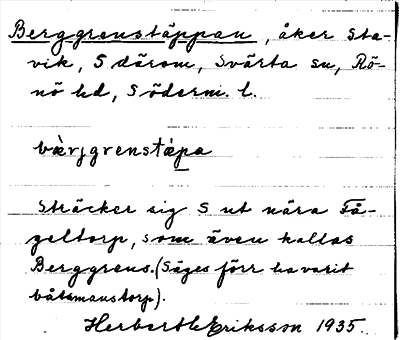 Berggrenstäppan, åker Sta-
vik, S därom, Svärta sn, Rö-
nö hd, Söderm. l.
bæ̀rjgrenstàpa
Sträcker sig S ut nära Få-
geltorp, som även kallas
Berggrens. (Säges förr ha varit
båtsmanstorp).
Herbert Eriksson 1935.